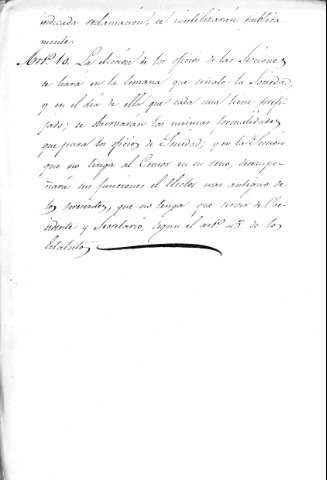 indicada reclamacion, se inutilizarán publica
mente.
Artº. 10. La eleccion de los oficios de las Secciones
se hará en la semana que señale la Sociedad,
y en el dia de ella que cada una tiene prefi-
jado; se observarán las mismas formalidades
que para los oficios de Sociedad; y en la Seccion
que no tenga al Censor en su seno, desempe-
ñará sus funciones el Elector mas antiguo de
los presentes, que no tenga que servir de Pre-
sidente y Secretario, segun el artº. 23 de los
Estatutos